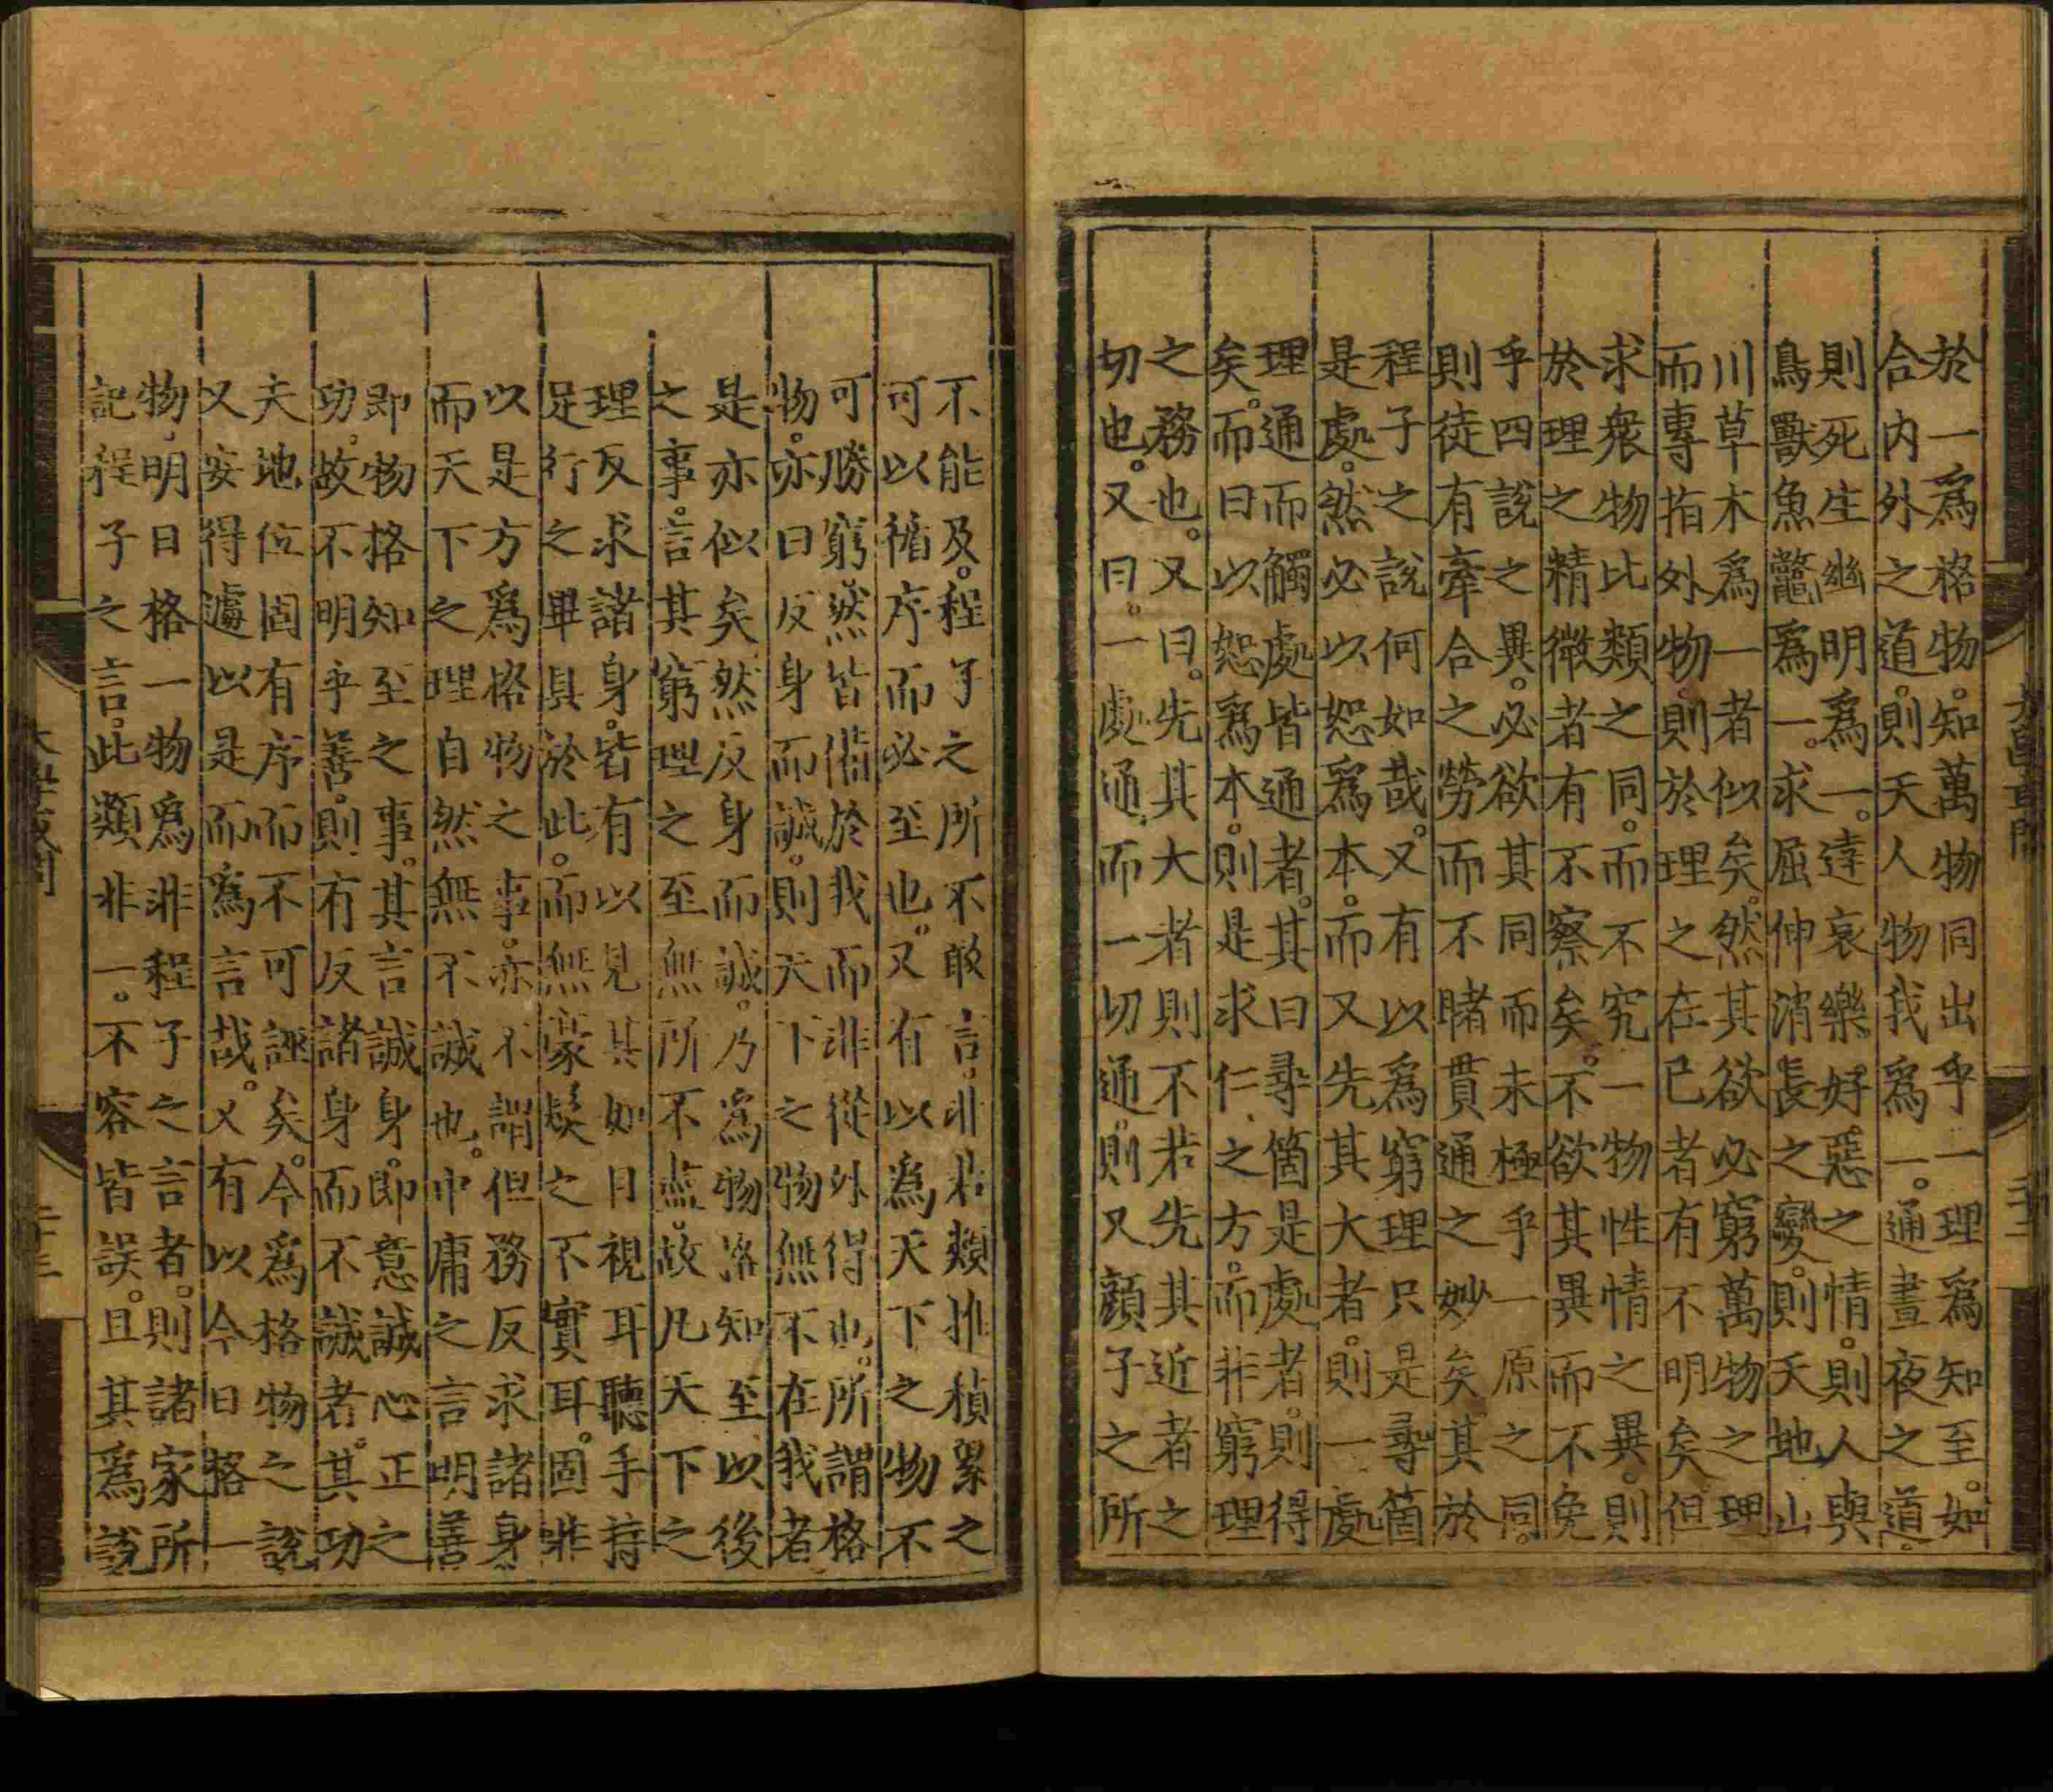 於一爲格物。知萬物同出乎一理爲知至。如
合内外之道。則天人物我爲一。通晝夜之道。
則死生幽明爲一。達哀樂好惡之情。則人與
鳥獸魚鼈爲一。求屈伸消長之變。則天地山
川草木爲一者似矣。然其欲必窮萬物之理
而專指外物。則於理之在已者有不明矣。但
求衆物比類之同。而不究一物性情之異。則
於理之精微者有不察矣。不欲其異而不免
乎四說之異。必欲其同而未極乎一原之同。
則徒有牽合之勞。而不睹貫通之妙矣。其於
程子之說何如哉。又有以爲窮理只是尋箇
是處。然必以恕爲本。而又先其大者。則一處
理通而觸處皆通者。其曰尋箇是處者。則得
矣。而曰以恕爲本。則是求仁之方。而非窮理
之務也。又曰。先其大者則不若先其近者之
切也。又曰。一處通而一切通。則又顔子之所
不能及。程子之所不敢言。非若類推積累之
可以循序而必至也。又有以爲天下之物不
可勝窮。然皆備於我而非從外得也。所謂格
物。亦曰反身而誠。則天下之物無不在我者
是亦似矣。然反身而誠。乃爲物格知至以後
之事。言其窮理之至無所不盡。故凡天下之
理反求諸身。皆有以見其如日視耳聽手持
足行之畢具於此。而無豪髮之不實耳。固非
以是方爲格物之事。亦不謂但務反求諸身
而天下之理自然無不誠也。中庸之言明善
即物格知至之事。其言誠身。即意誠心正之
功。故不明乎善。則有反諸身而不誠者。其功
夫地位固有序而不可誣矣。今爲格物之說
又安得遽以是而爲言哉。又有以今日格一
物。明日格一物爲非程子之言者。則諸家所
記程子之言。此類非一。不容皆誤。且其爲說